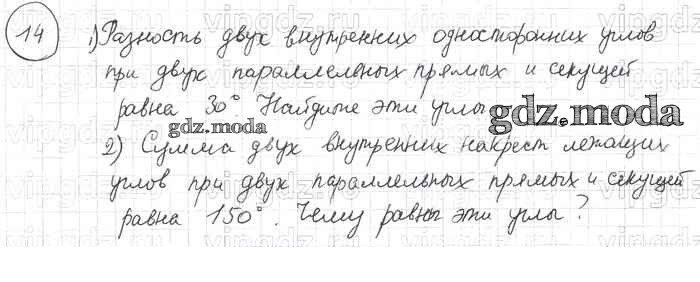 14
1) Разность двух внутренних односторонних углов
при двух параллельных прямых и секущей
равна 30° Найдите эти углы
gdz.moda
gdz.moda
2) Сумма двух внутренних накрест лежащих
углов при двух параллельных прямых и секущей
равна 150°. Чему равны эти углы?